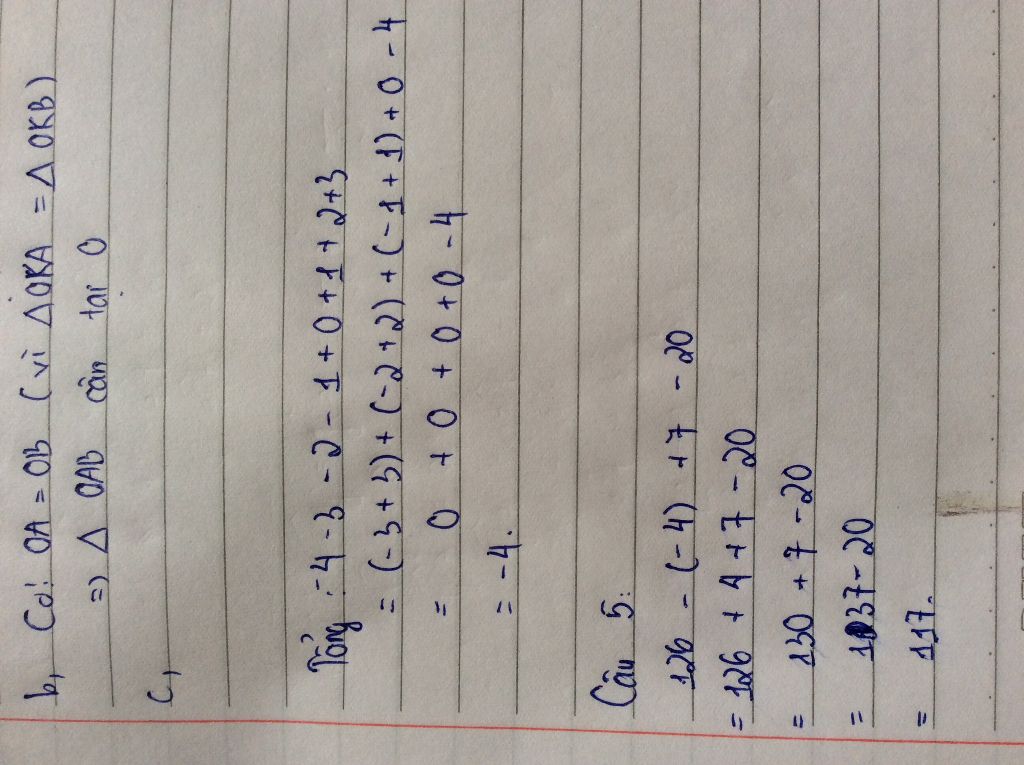 b, Có: OA = OB (vì ΔOKA = ΔOKB)
=> Δ OAB cân tại O
c,
Tổng: -4 - 3 - 2 - 1 + 0 + 1 + 2 + 3
= (-3 + 3) + (-2 + 2) + (-1 + 1) + 0 - 4
= 0 + 0 + 0 + 0 - 4
= -4.
Câu 5:
126 - (-4) + 7 - 20
= 126 + 4 + 7 - 20
= 130 + 7 - 20
= 137 - 20
= 117.